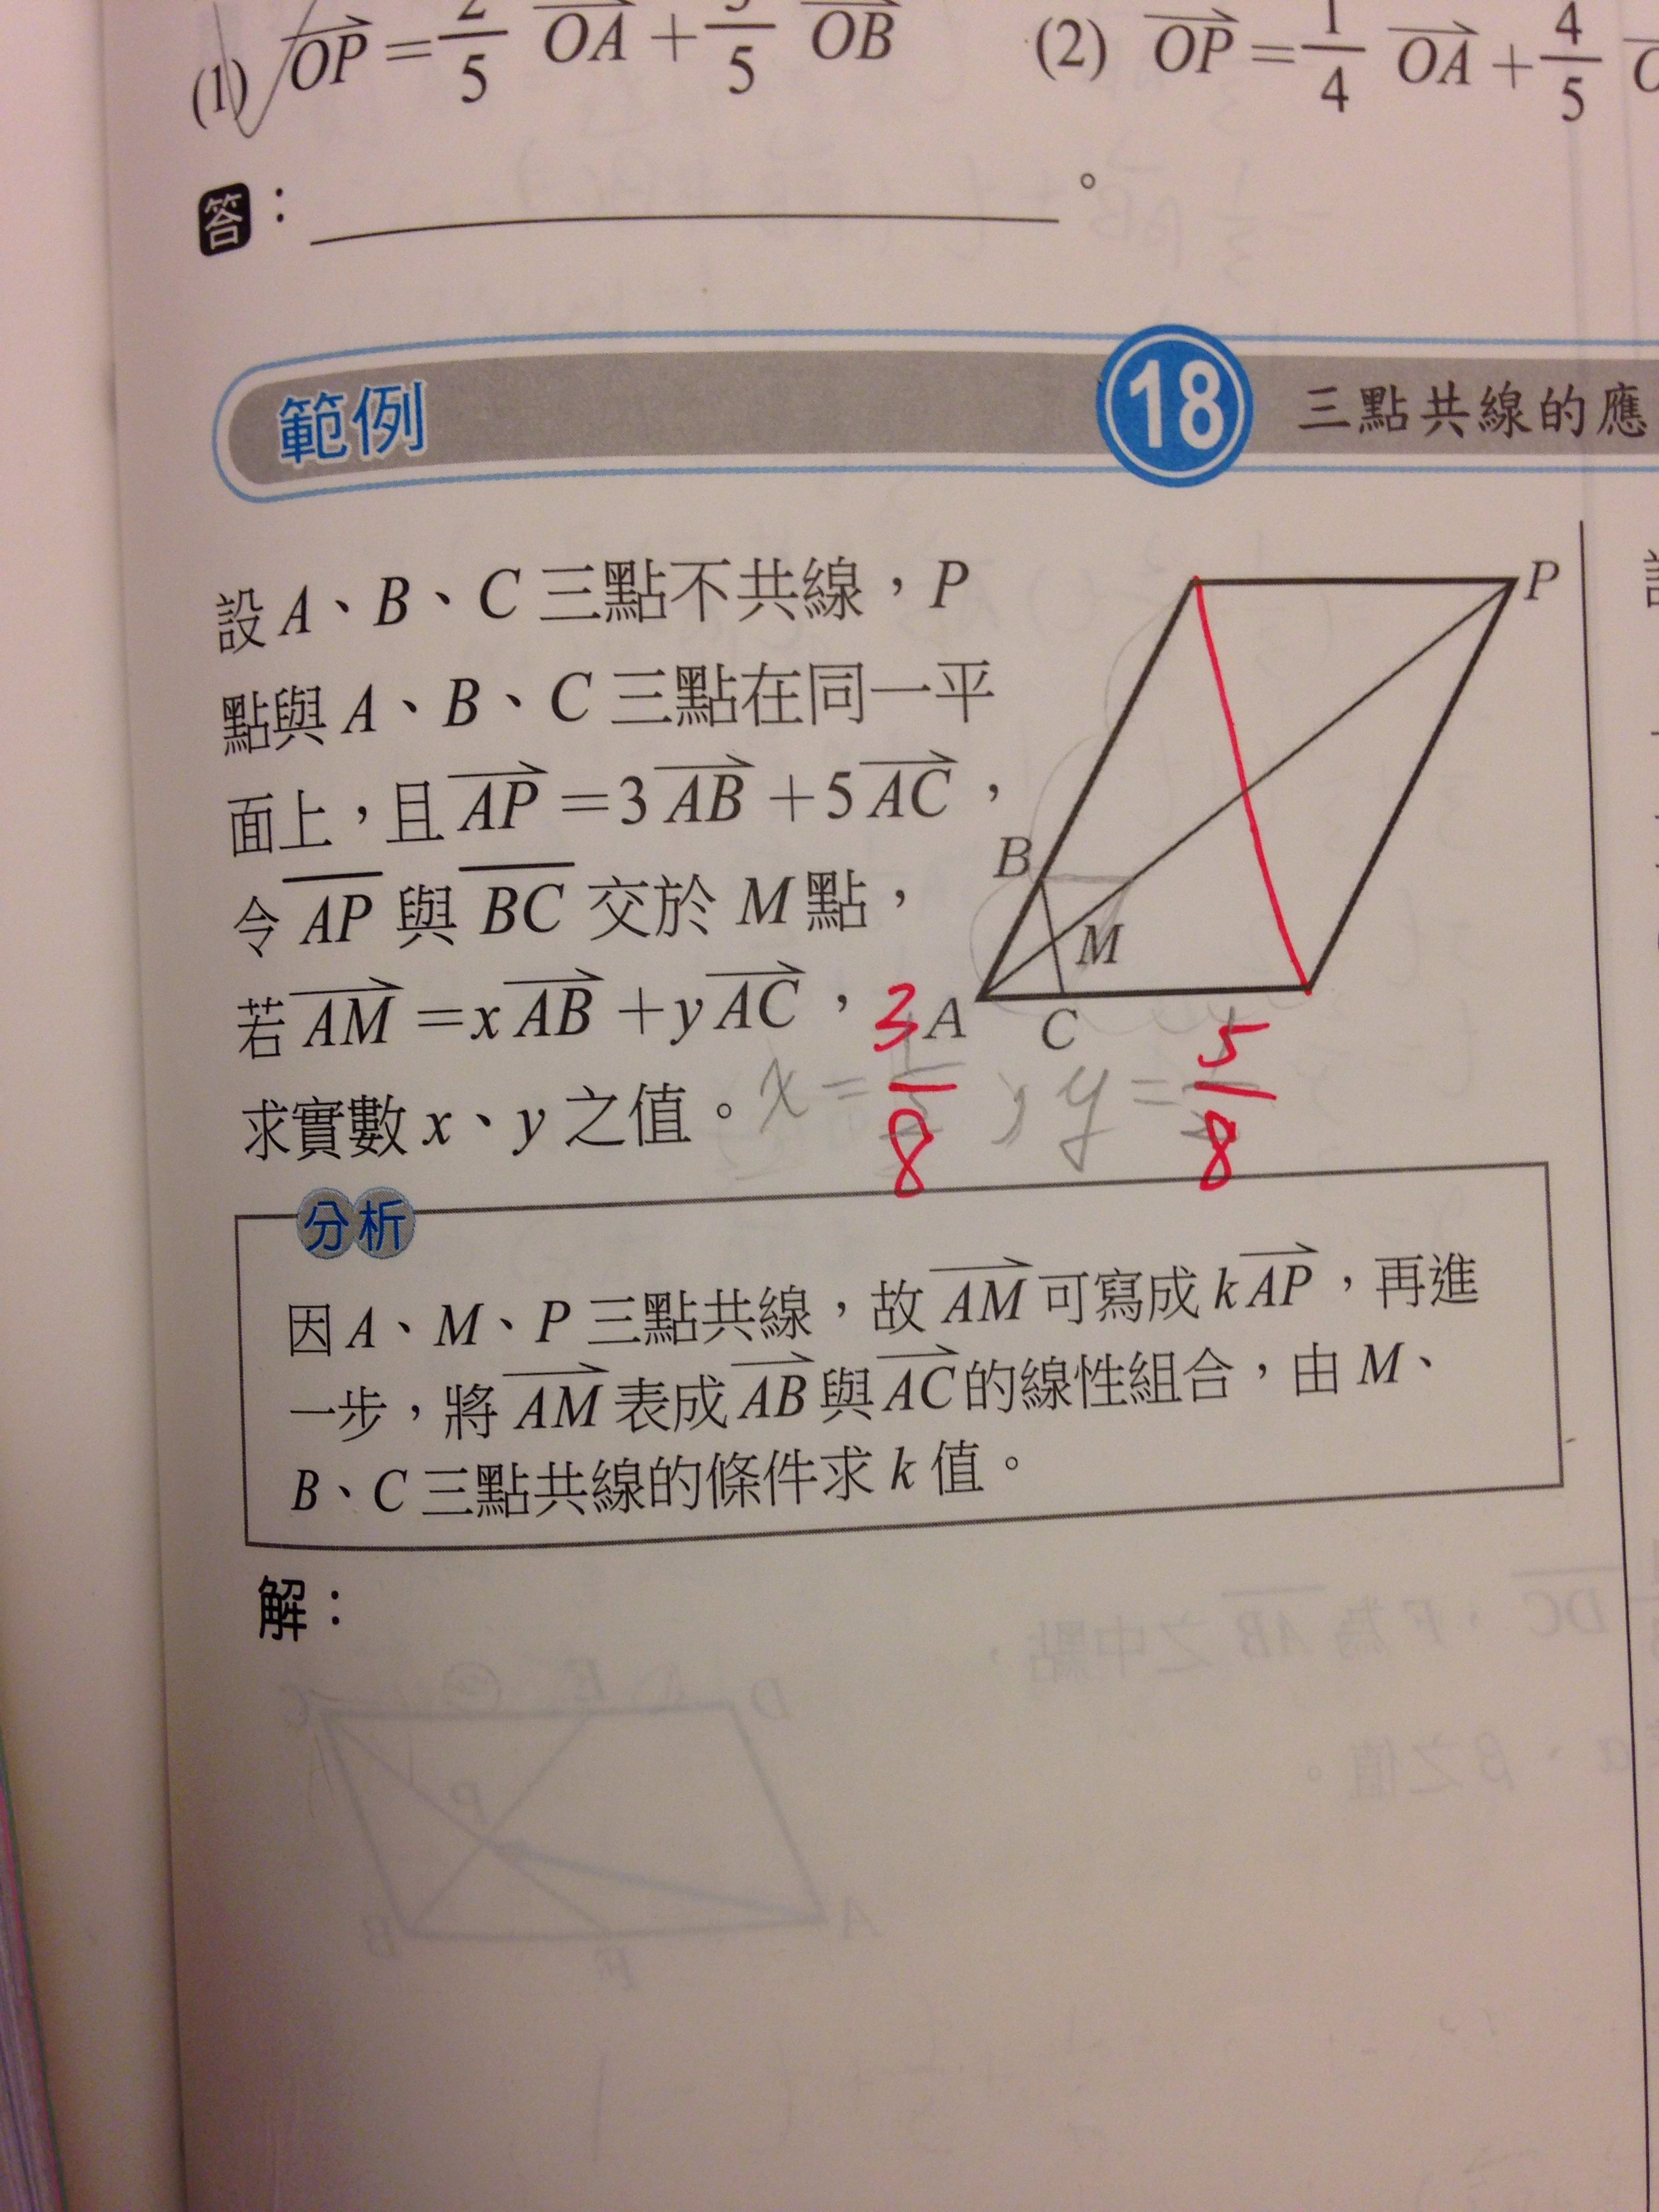 (1) OP = 2/5 OA + 3/5 OB (2) OP = 1/4 OA + 4/5
答：＿＿＿＿＿＿。
範例 18 三點共線的應
設A、B、C三點不共線，P
點與A、B、C三點在同一平
面上，且AP=3AB+5AC，
令AP與BC交於M點，
若AM=xAB+yAC，
求實數x、y之值。
x= 3/8 , y= 5/8
P
B
M
A
C
分析
因A、M、P三點共線，故AM可寫成kAP，再進
一步，將AM表成AB與AC的線性組合，由M、
B、C三點共線的條件求k值。
解：